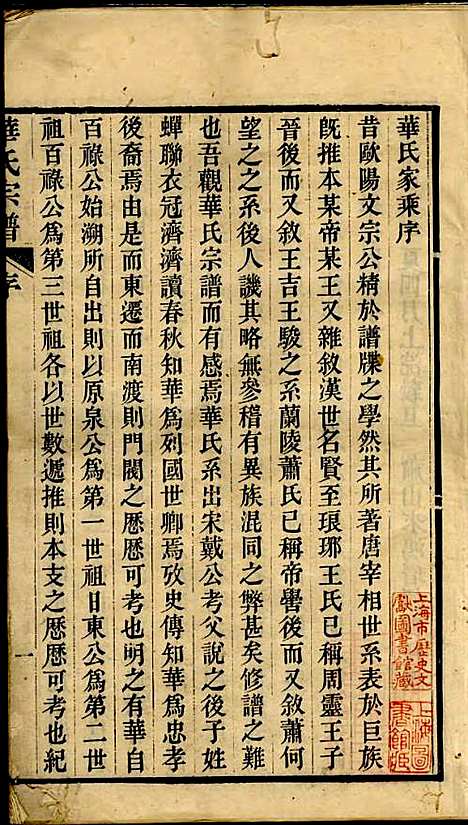 華氏家乘序
昔歐陽文宗公精於譜牒之學然其所著唐宰相世系表於巨族
旣推本某帝某王又雜敘漢世名賢至琅琊王氏已稱周靈王子
晉後而又敘王吉王駿之系蘭陵蕭氏已稱帝嚳後而又敘蕭何
望之之系後人譏其略無參稽有異族混同之弊甚矣修譜之難
也吾觀華氏宗譜而有感焉華氏系出宋戴公考父說之後子姓
蟬聯衣冠濟濟讀春秋知華爲列國世卿焉攷史傳知華爲忠孝
後裔焉由是而東遷而南渡則門閥之厯厯可考也明之有華自
百祿公始溯所自出則以原泉公爲第一世祖日東公爲第二世
祖百祿公爲第三世祖各以世數遞推則本支之厯厯可考也紀
華氏宗譜
序
一
上海市歷史文
獻圖書館藏
上海圖
書館藏